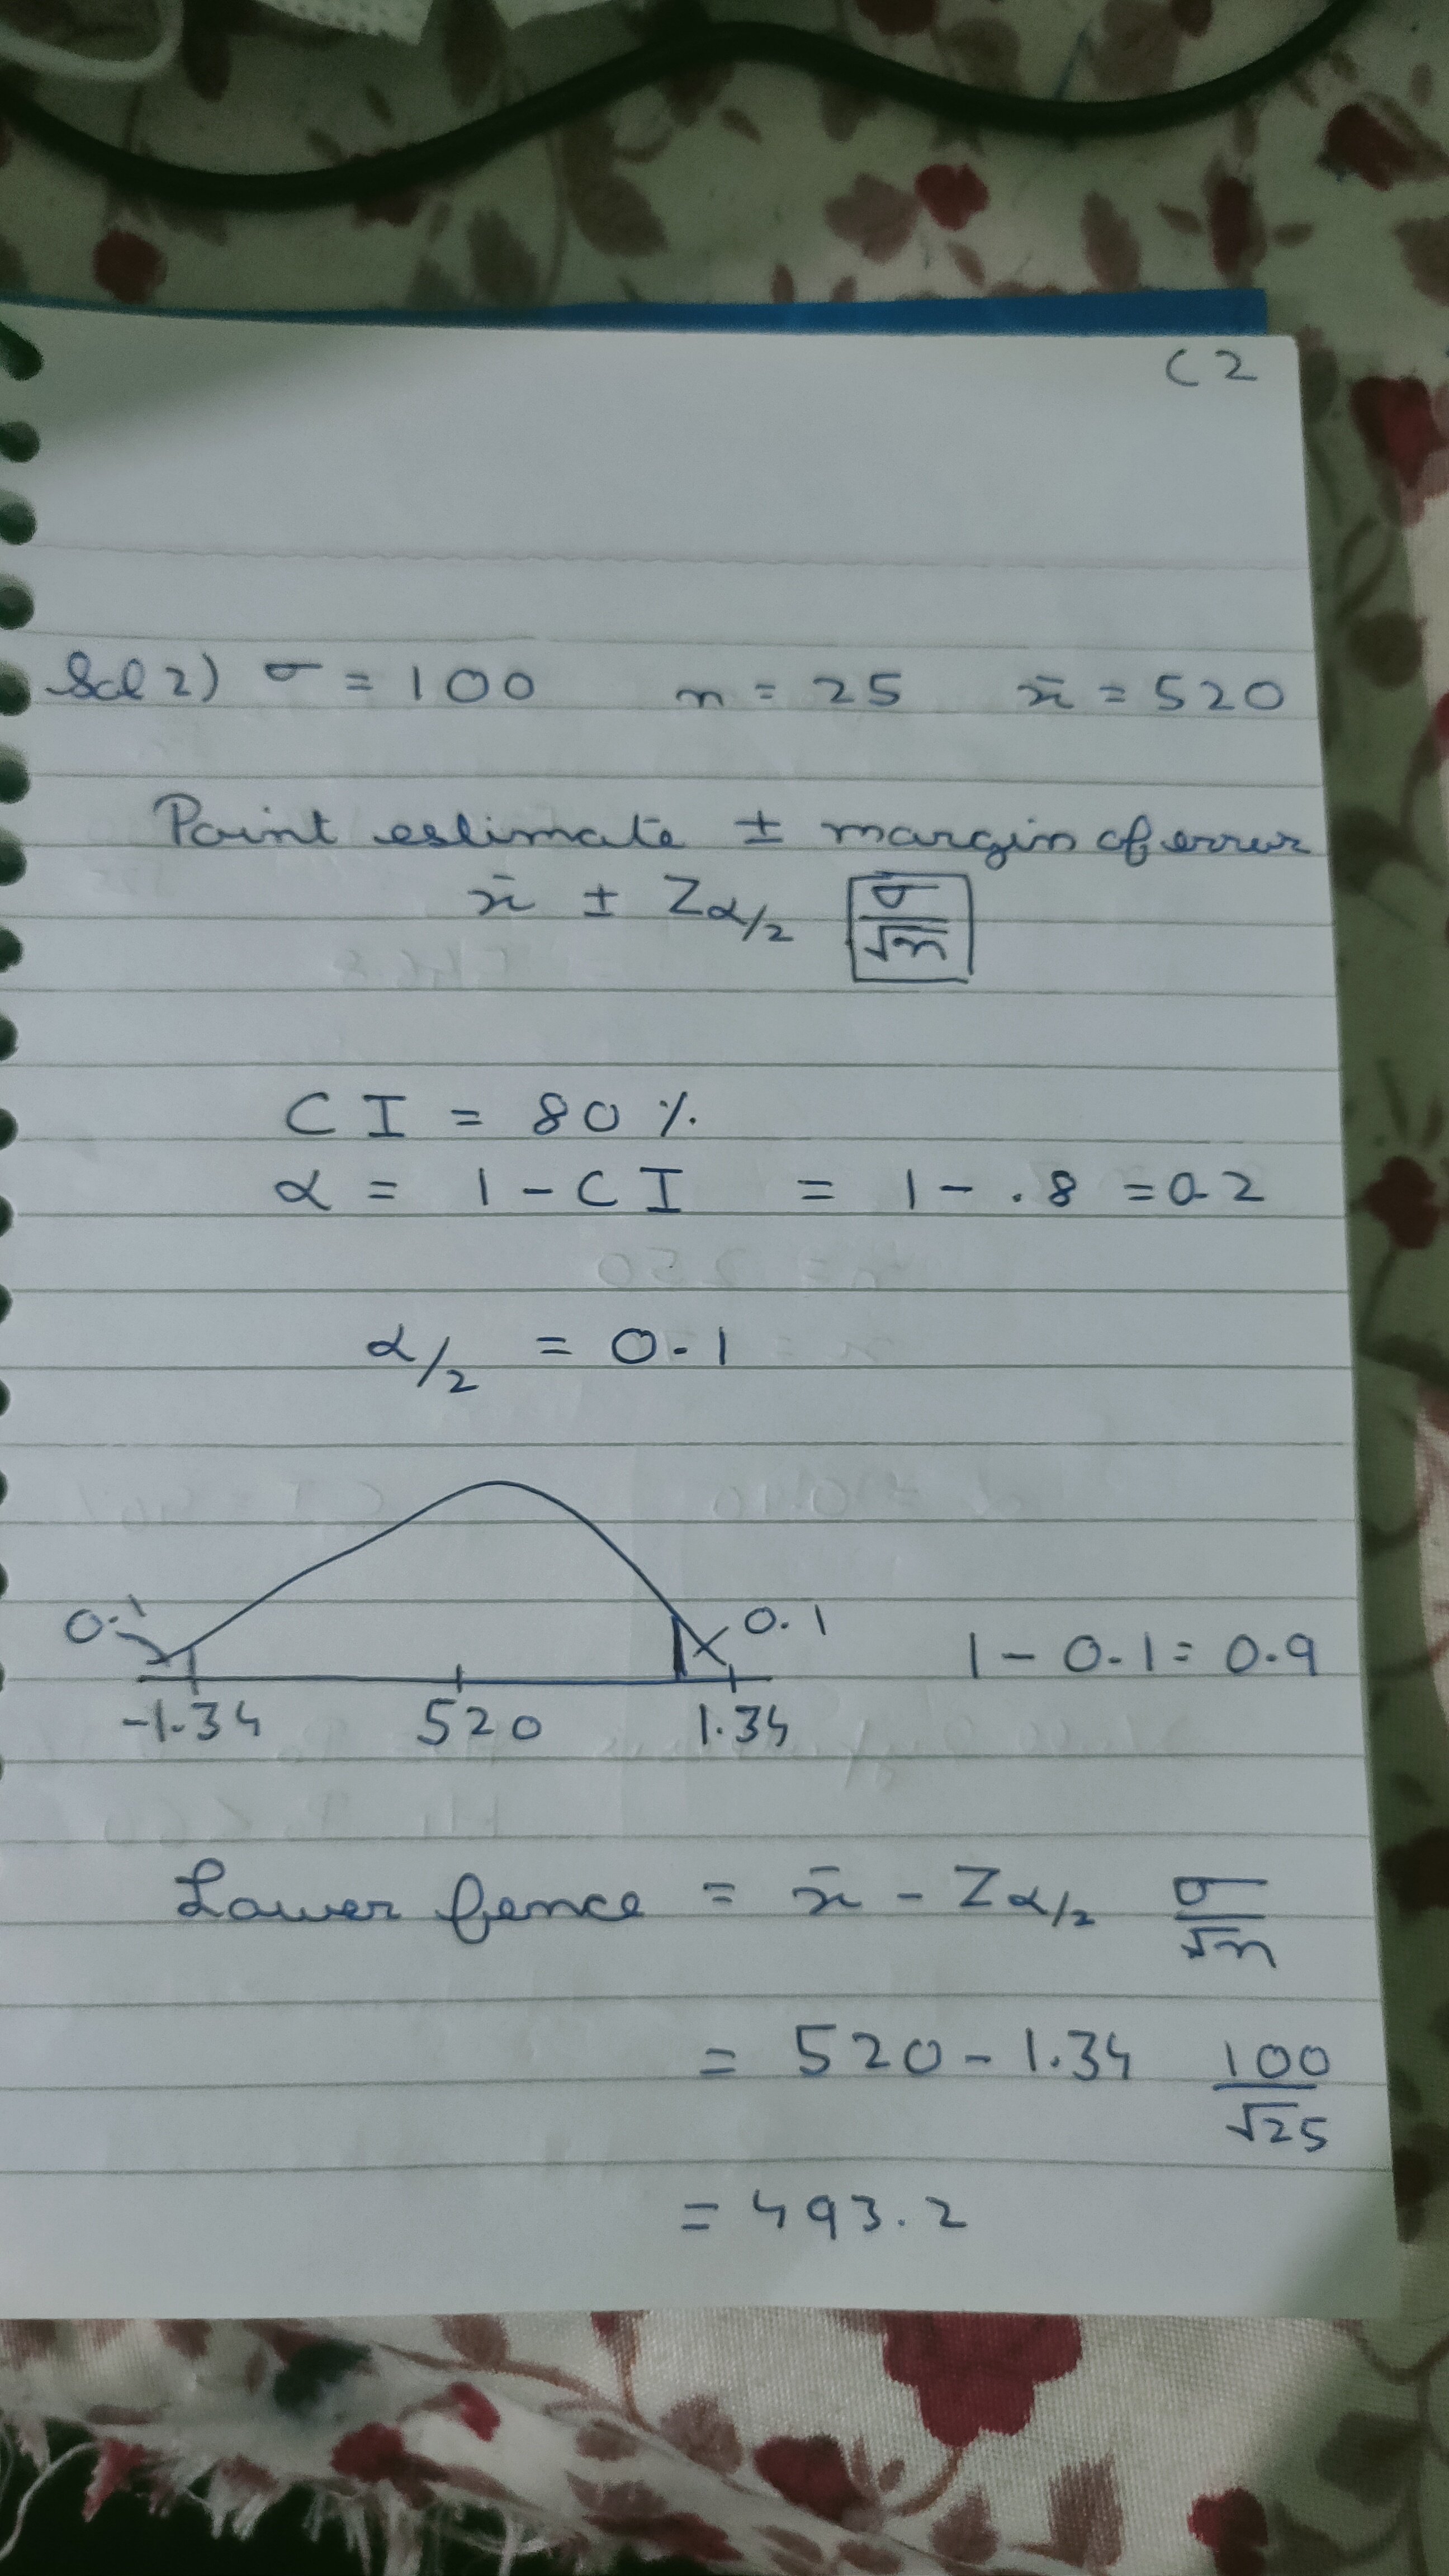 C2
Sol 2) σ = 100 n = 25 x̄ = 520
Point estimate ± margin of error
x̄ ± Zα/2 σ/√n
CI = 80 %
α = 1 - CI = 1 - .8 = 0.2
α/2 = 0.1
0.1 0.1 1 - 0.1 = 0.9
-1.34 520 1.34
Lower fence = x̄ - Zα/2 σ/√n
= 520 - 1.34 100/√25
= 493.2